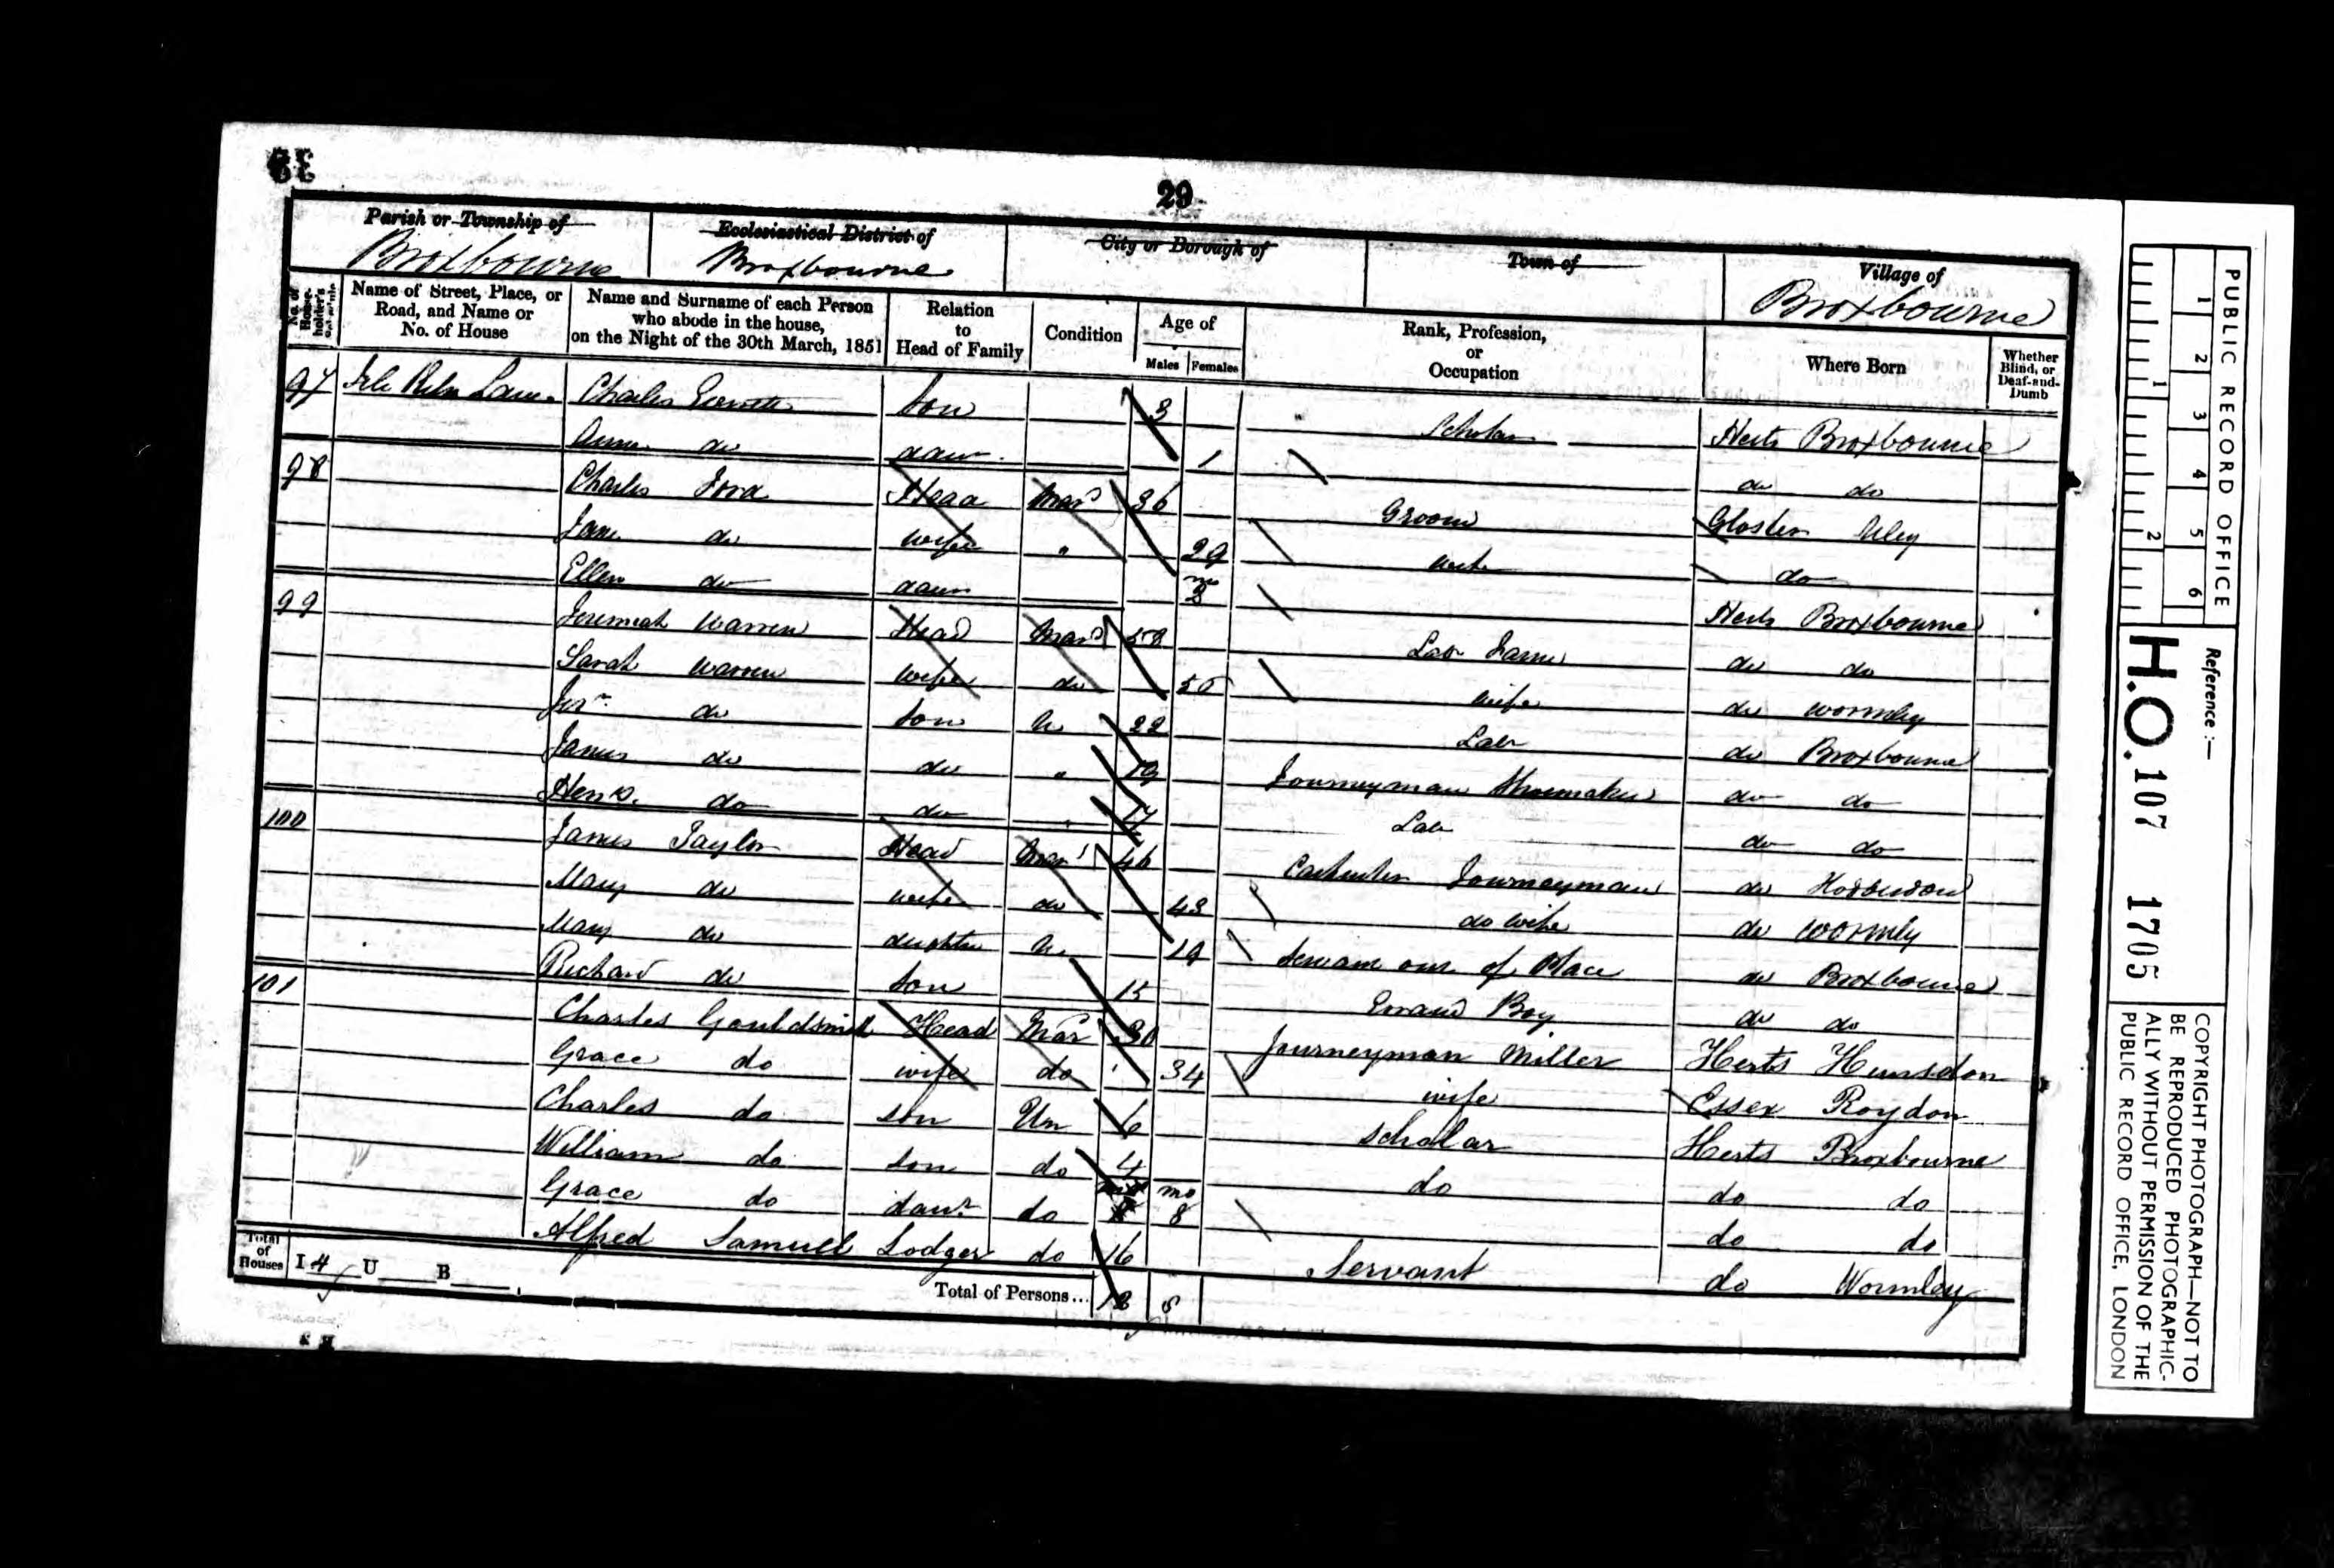 29
Parish or Township of
Ecclesiastical District of
City or Borough of
Town of
Village of
Broxbourne
Broxbourne
Broxbourne
No. of House-holder's
Name of Street, Place, or Road, and Name or No. of House
Name and Surname of each Person who abode in the house, on the Night of the 30th March, 1851
Relation to Head of Family
Condition
Age of
Males
Females
Rank, Profession, or Occupation
Where Born
Whether Blind, or Deaf-and-Dumb
97 Lane Charles son 3 Scholar Herts Broxbourne
do daur 1 do do
98 Charles Ford Head Mard 36 Groom Gloster Uley
Jane do wife " 29 wife do
Ellen do daur mo 3 Herts Broxbourne
99 Jeremiah Warren Head Mard 58 Lab do do
Sarah Warren wife do wife do Wormley
Jerr do son U 22 Lab do Broxbourne
James do do " 19 Journeyman Shoemaker do do
Heny. do do " 17 Lab do do
100 James Taylor Head Mard 46 Carpenter Journeyman do Hoddesdon
Mary do wife do 43 do wife do Wormly
Mary do daughter U. 19 Servant out of Place do Broxbourne
Richard do son 15 Errand Boy do do
101 Charles Gouldsmith Head Mar 30 Journeyman Miller Herts Hunsdon
Grace do wife do 34 wife Essex Roydon
Charles do son Un 6 scholar Herts Broxbourne
William do son do 4 do do do
Grace do daur do mo 8 do do
Alfred Samuel Lodger do 16 Servant do Wormley
Total of Houses I 4 U B
Total of Persons... 12 8
PUBLIC RECORD OFFICE
1 2 3 4 5 6
1 2
Reference :-
H.O. 107 1705
COPYRIGHT PHOTOGRAPH—NOT TO
BE REPRODUCED PHOTOGRAPHIC-
ALLY WITHOUT PERMISSION OF THE
PUBLIC RECORD OFFICE, LONDON